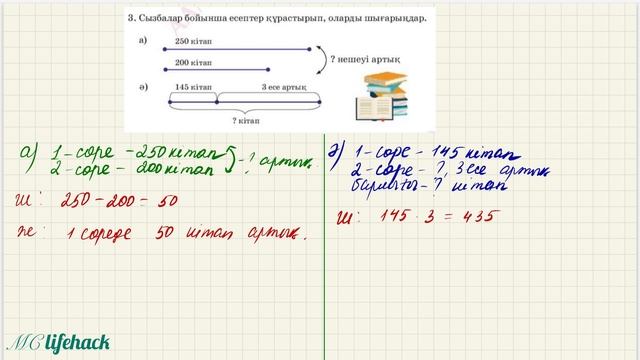 3. Сызбалар бойынша есептер құрастырып, оларды шығарыңдар.
а)
250 кітап
200 кітап
? нешеуі артық
ә)
145 кітап
3 есе артық
? кітап
а) 1-сөре - 250 кітап
2-сөре - 200 кітап
-? артық
ш: 250 - 200 = 50
ж: 1 сөреде 50 кітап артық.
ә) 1-сөре - 145 кітап
2-сөре - ?, 3 есе артық
барлығы - ? кітап
ш: 145 · 3 = 435
MC lifehack